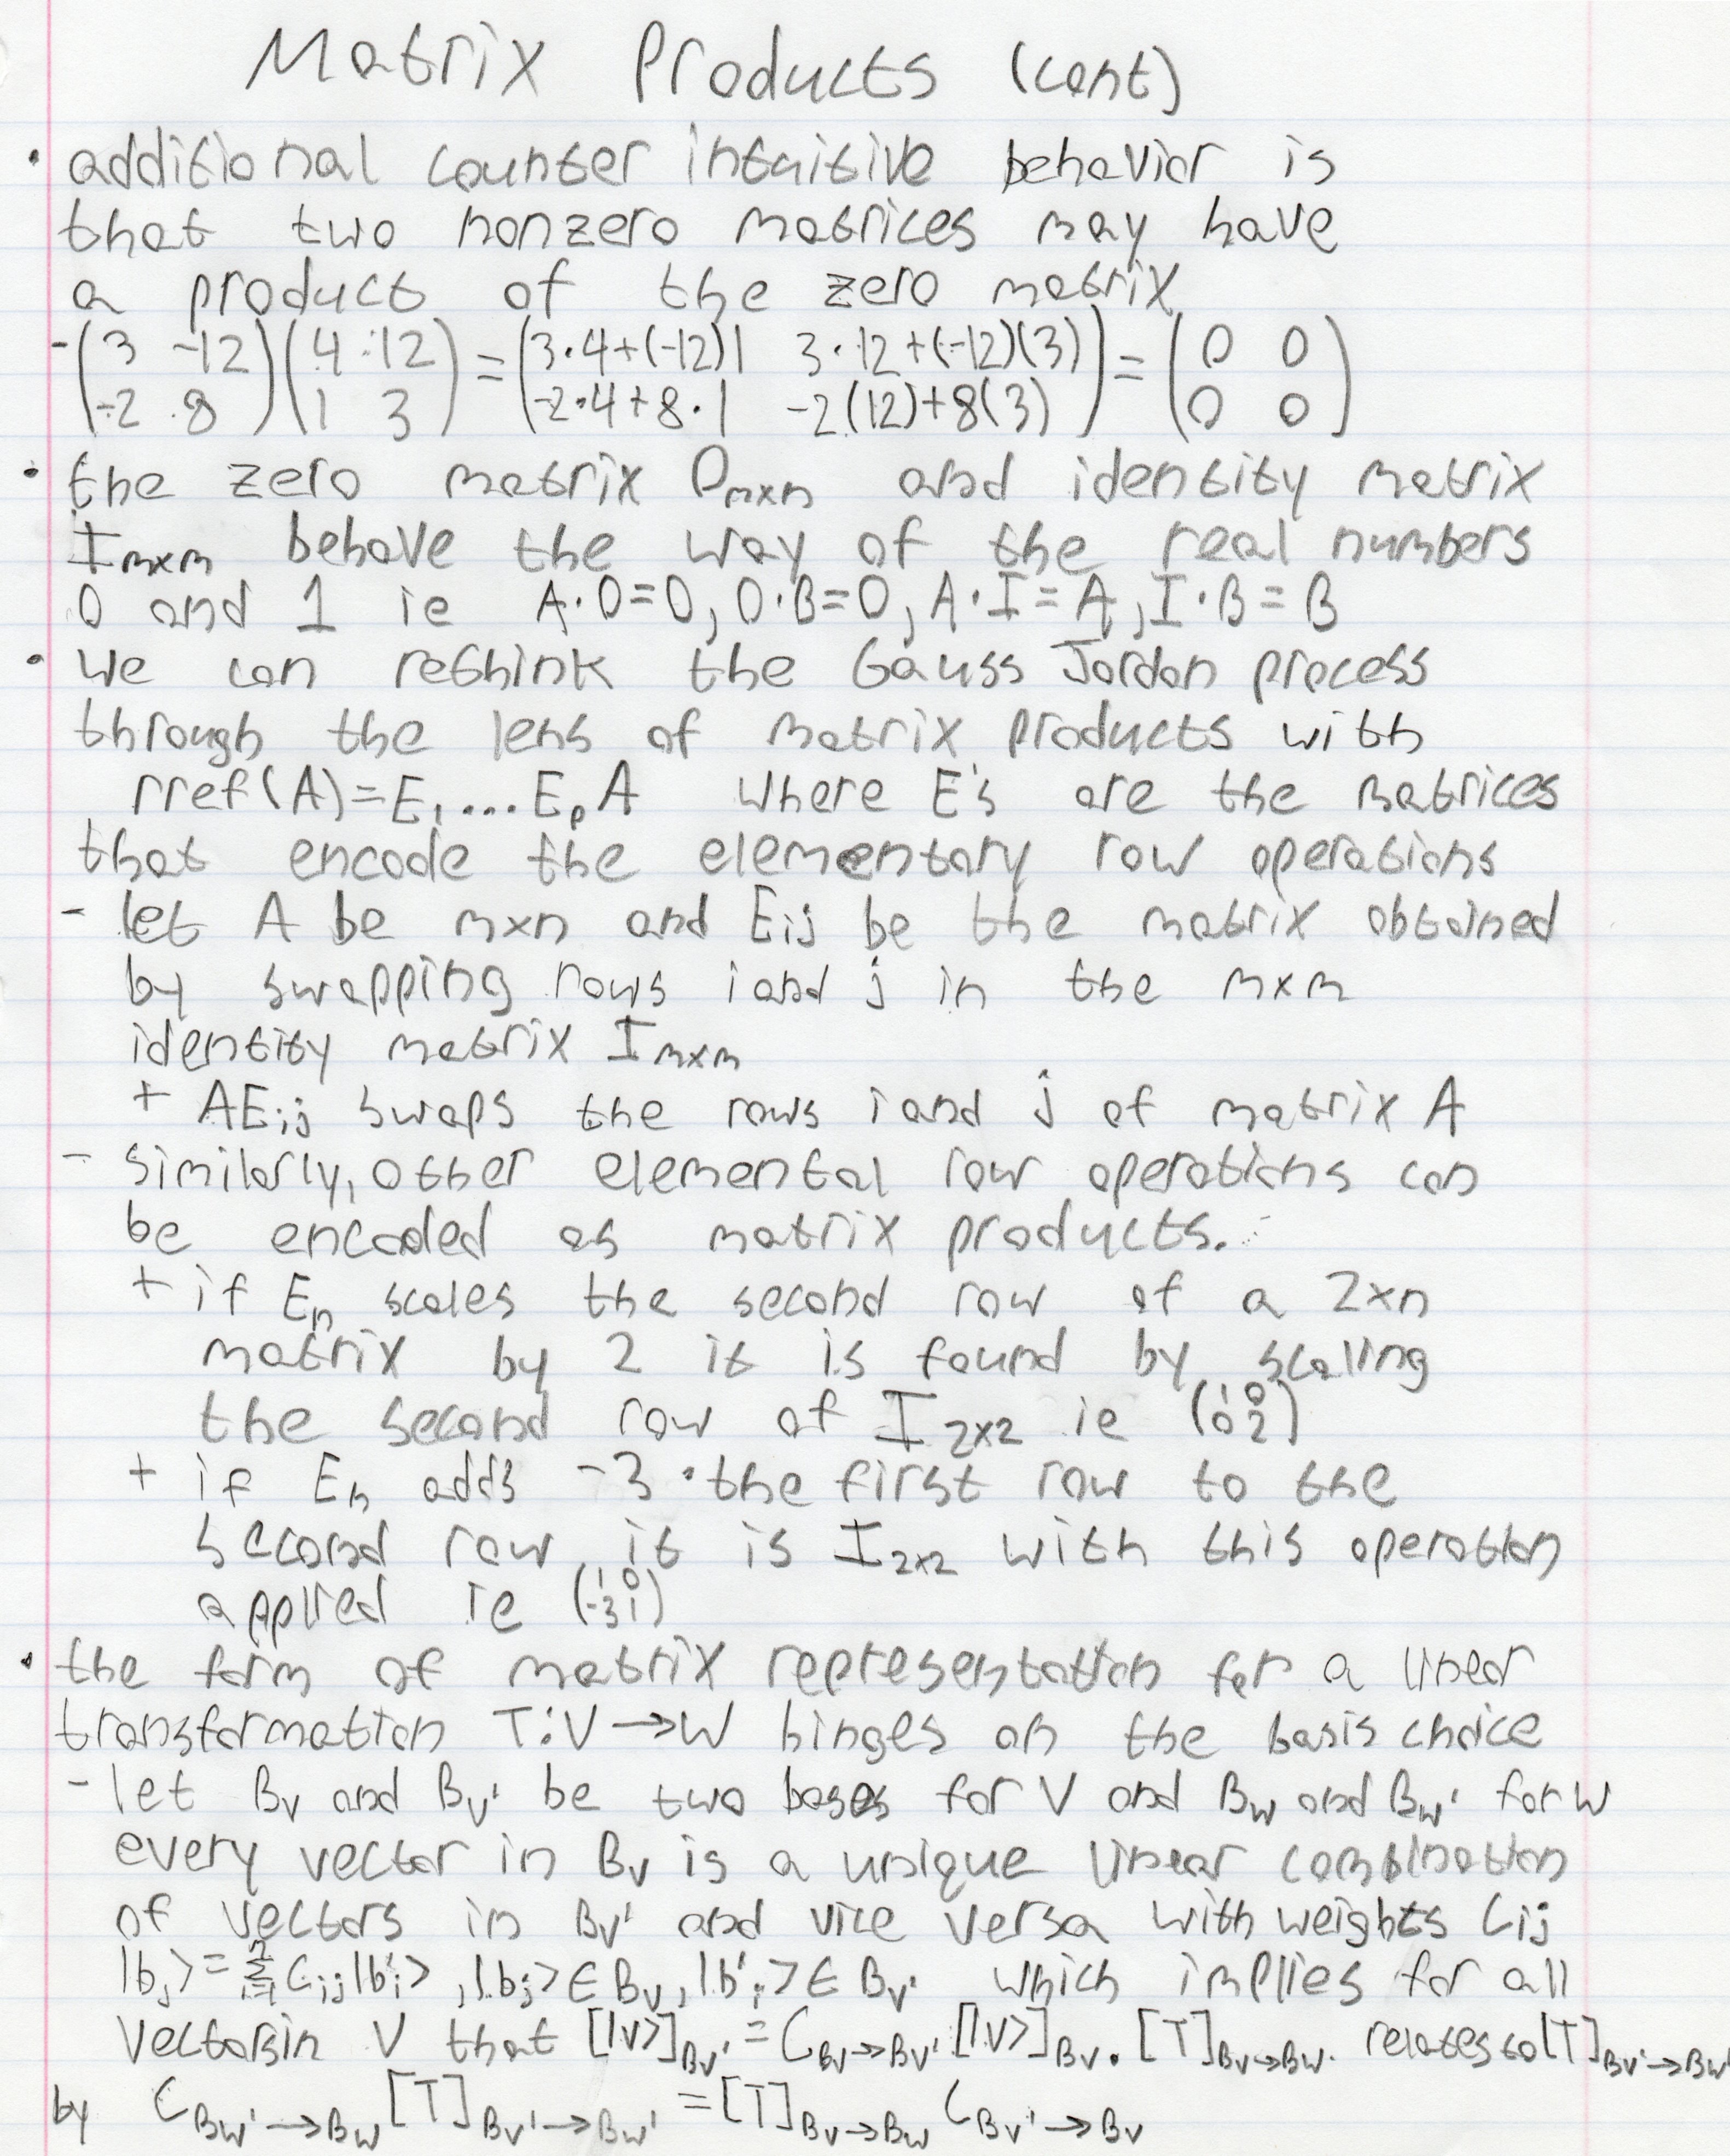 Matrix Products (cont)
• additional counter intuitive behavior is
that two nonzero matrices may have
a product of the zero matrix
- (3 -12 / -2 8)(4 12 / 1 3) = (3·4+(-12)1 3·12+(-12)(3) / -2·4+8·1 -2(12)+8(3)) = (0 0 / 0 0)
• the zero matrix 0mxn and identity matrix
Imxm behave the way of the real numbers
0 and 1 ie A·0=0, 0·B=0, A·I=A, I·B=B
• we can rethink the Gauss Jordan process
through the lens of matrix products with
rref(A)=E₁...EₚA where E's are the matrices
that encode the elementary row operations
- let A be mxn and Eij be the matrix obtained
by swapping rows i and j in the mxm
identity matrix Imxm
+ AEij swaps the rows i and j of matrix A
- similarly, other elemental row operations can
be encoded as matrix products.
+ if En scales the second row of a 2xn
matrix by 2 it is found by scaling
the second row of I2x2 ie (1 0 / 0 2)
+ if En adds -3 · the first row to the
second row, it is I2x2 with this operation
applied ie (1 0 / -3 1)
• the form of matrix representation for a linear
transformation T:V→W hinges on the basis choice
- let Bv and Bv' be two bases for V and Bw and Bw' for W
every vector in Bv is a unique linear combination
of vectors in Bv' and vice versa with weights Cij
|bj>=Σⁿi=1 Cij|b'i>, |bj>∈Bv, |b'i>∈Bv' which implies for all
vectors in V that [|v>]Bv'=CBv→Bv'[|v>]Bv. [T]Bv→Bw. relates to [T]Bv'→Bw'
by CBw'→Bw[T]Bv'→Bw'=[T]Bv→Bw CBv'→Bv